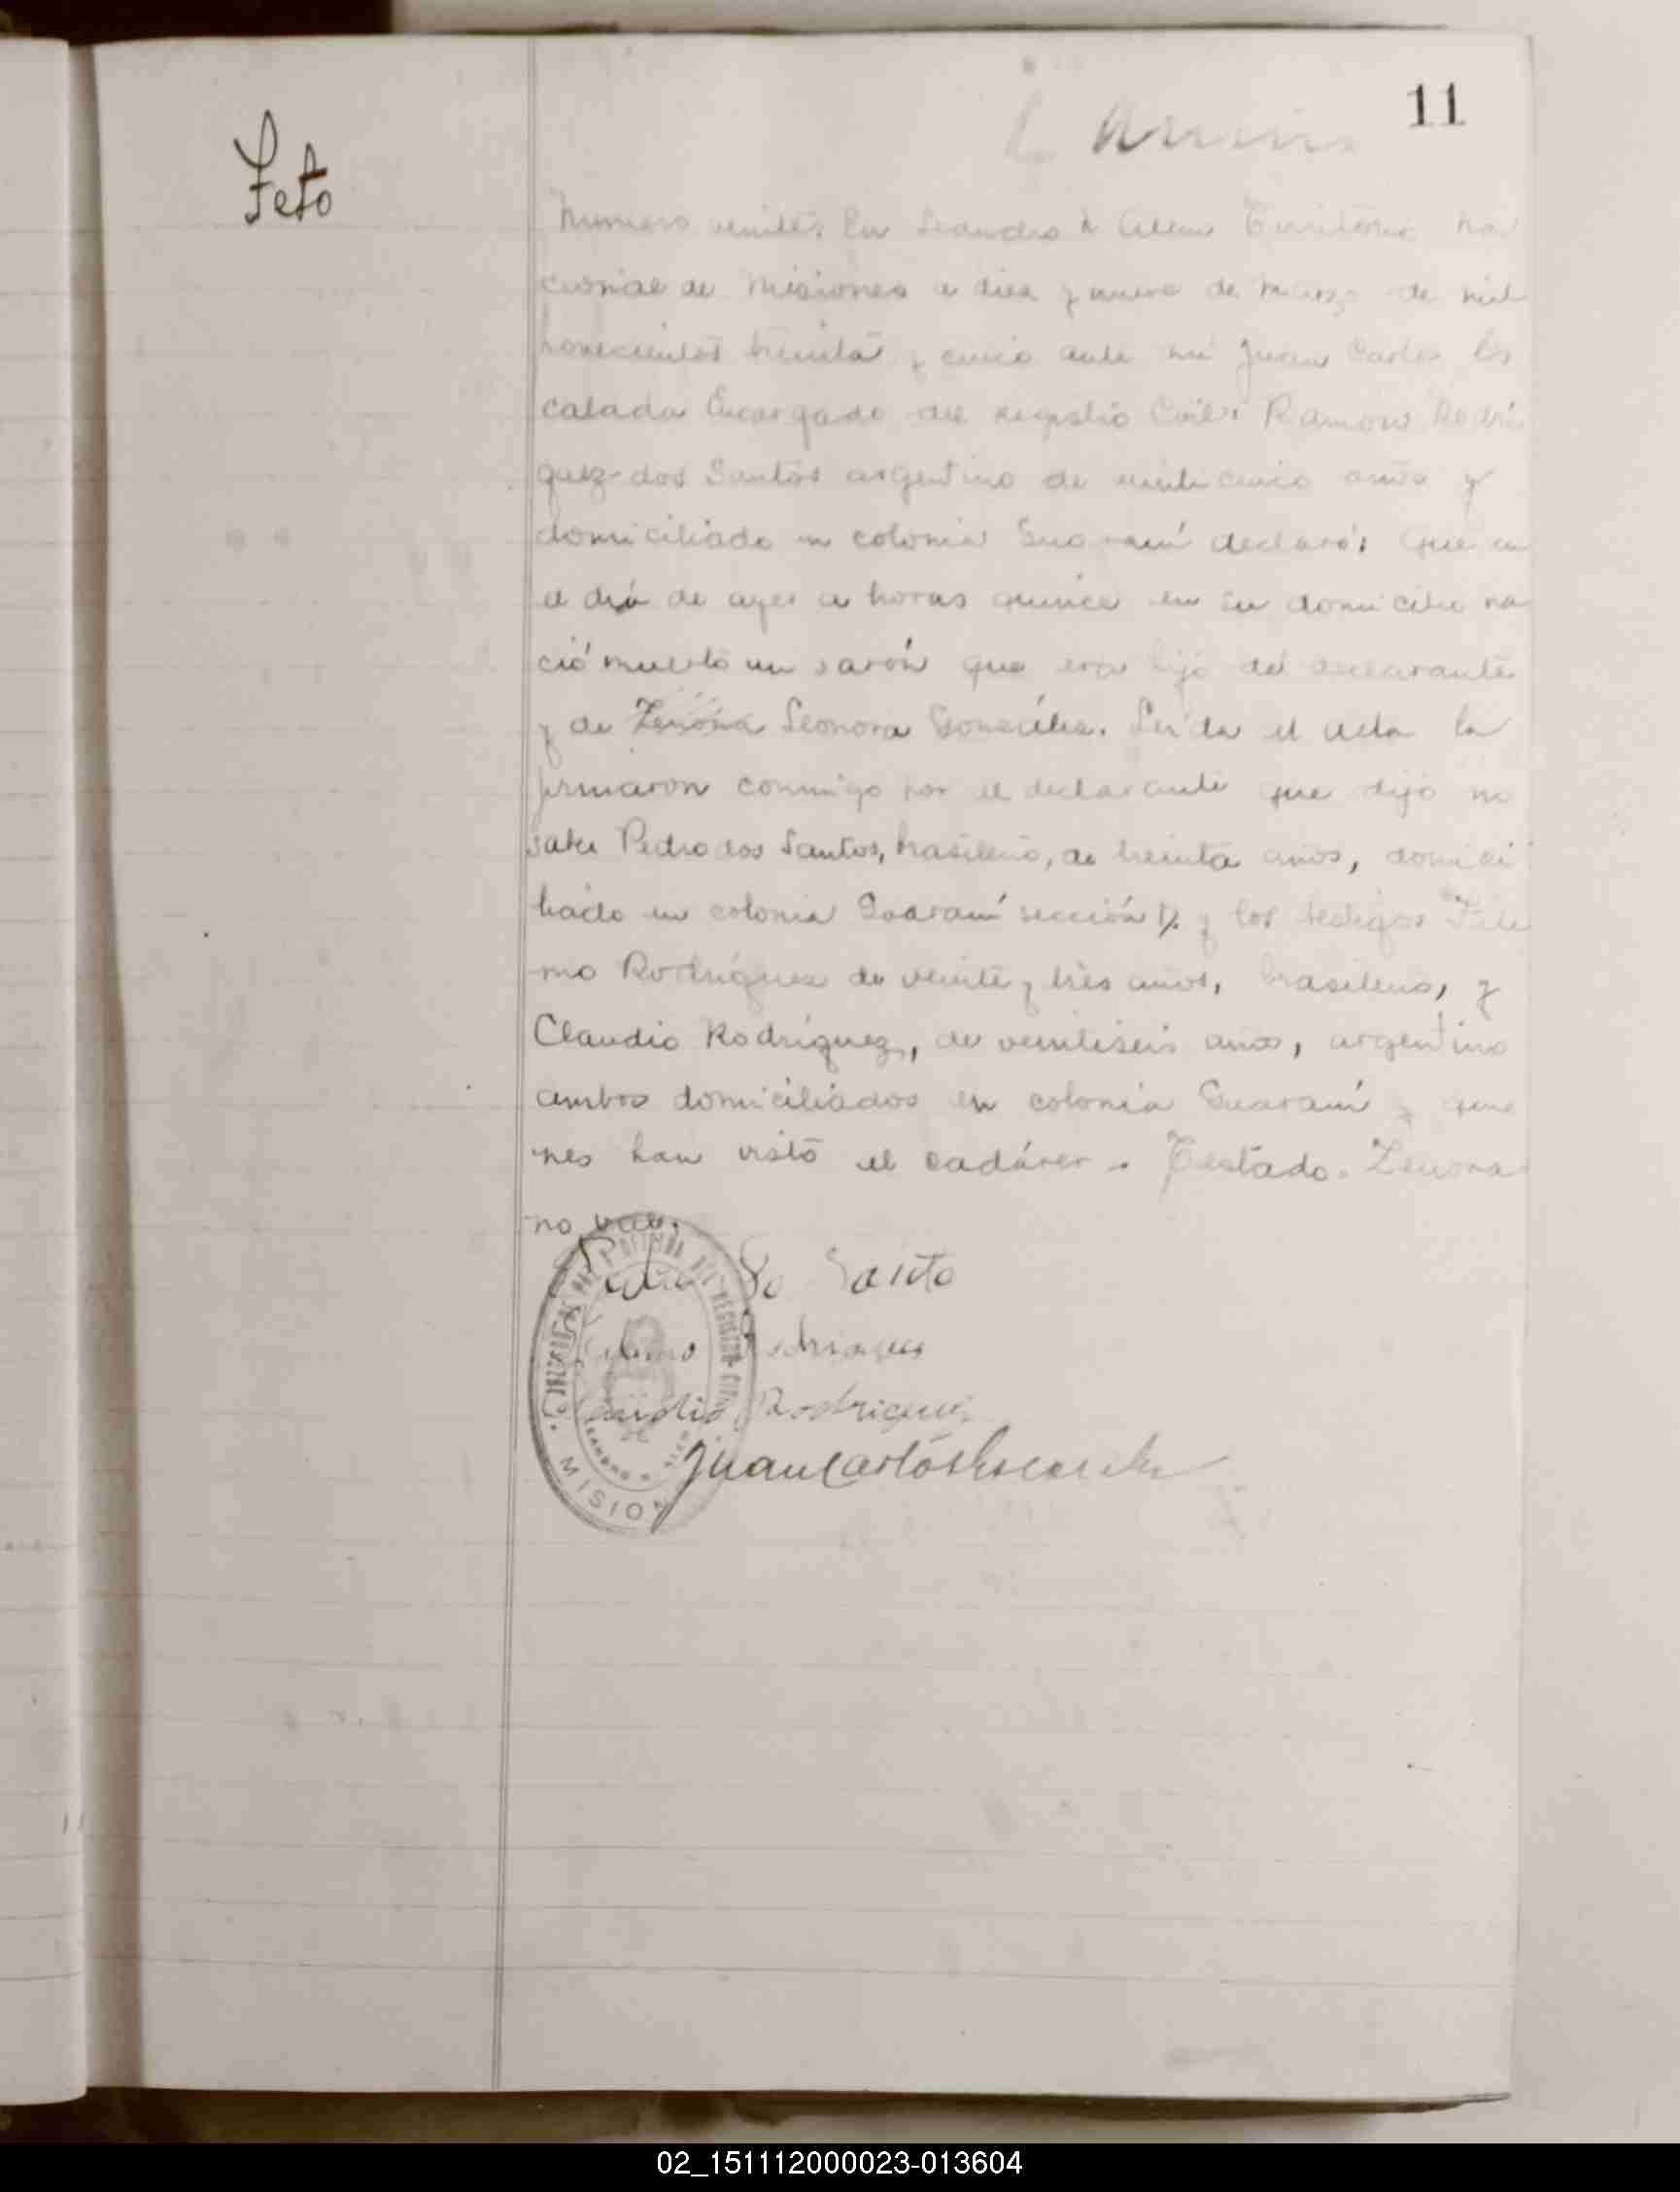 11
Feto
Numero veintes. En Leandro N Alem Territorio na
cional de Misiones a diez y nueve de Marzo de mil
novecientos treinta y cinco ante mi Juan Carlos Es
calada Encargado del Registro Civil: Ramon Rodri
guez dos Santos argentino de veinticinco años y
domiciliado en colonia Guaraní declaró: Que en
el día de ayer a horas quince en su domicilio na
ció muerto un varón que era hijo del declarante
y de Zenona Leonora González. Leída el acta la
firmaron conmigo por el declarante que dijo no
saber Pedro dos Santos, brasileño, de treinta años, domici
liado en colonia Guaraní sección y los testigos
mo Rodríguez de veinte y tres años, brasileño, y
Claudio Rodríguez, de veintiseis años, argentino
ambos domiciliados en colonia Guaraní y quie
nes han visto el cadáver. Testado. Zenona
no vale.
Pedro Do Santo
Rodrigues
Claudio Rodriguez
Juan Carlos Escalada
OFICINA DEL REGISTRO CIVIL
MISION
02_151112000023-013604